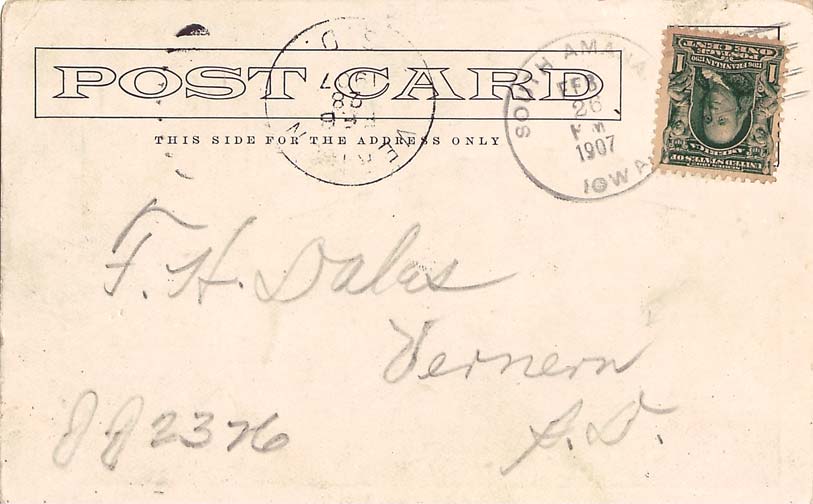 POST CARD
THIS SIDE FOR THE ADDRESS ONLY
SOUTH AMANA
FEB
26
PM
1907
IOWA
ONE CENT
POSTAGE
1 1
UNITED STATES OF
AMERICA
F. H. Dales
S.D.
2376